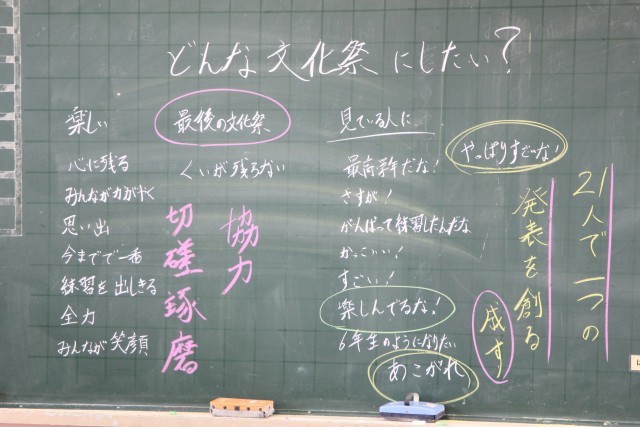 どんな文化祭にしたい?
楽しい
心に残る
みんながかがやく
思い出
今までで一番
練習を出しきる
全力
みんなが笑顔
最後の文化祭
くいが残らない
協力
切磋琢磨
見ている人に
最高学年だな!
さすが!
がんばって練習したんだな
かっこいい!
すごい!
楽しんでるな!
6年生のようになりたい
あこがれ
やっぱりすごいな!
21人で一つの
発表を創る
成す